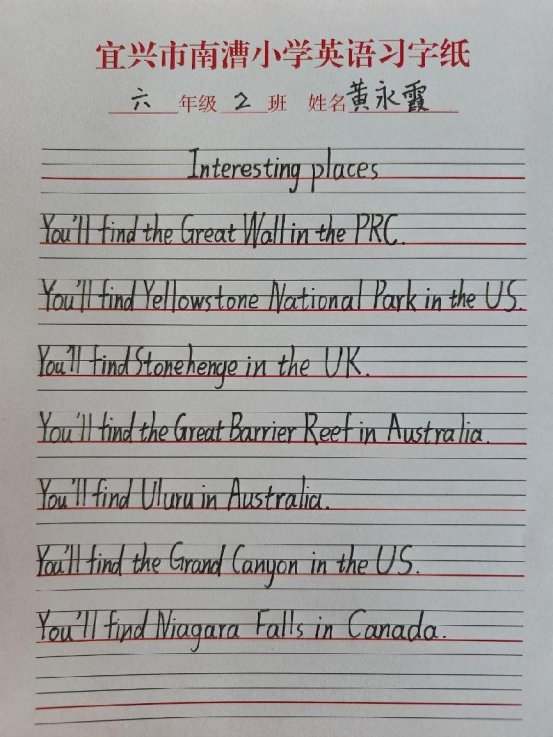 宜兴市南漕小学英语习字纸
六年级 2 班 姓名黄永霞
Interesting places
You'll find the Great Wall in the PRC.
You'll find Yellowstone National Park in the US.
You'll find Stonehenge in the UK.
You'll find the Great Barrier Reef in Australia.
You'll find Uluru in Australia.
You'll find the Grand Canyon in the US.
You'll find Niagara Falls in Canada.